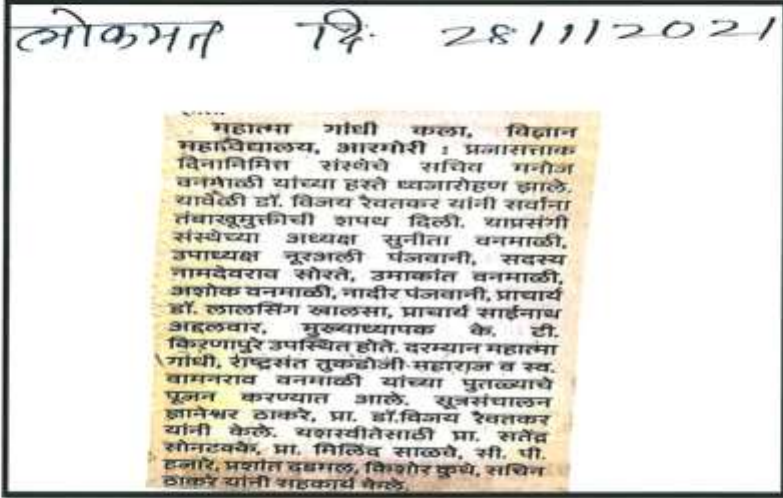 लोकमत दि. 28/1/2021
महात्मा गांधी कला, विज्ञान
महाविद्यालय, आरमोरी : प्रजासत्ताक
दिनानिमित्त संस्थेचे सचिव मनोज
वनमाळी यांच्या हस्ते ध्वजारोहण झाले.
यावेळी डॉ. विजय रैवतकर यांनी सर्वांना
तंबाखूमुक्तीची शपथ दिली. याप्रसंगी
संस्थेच्या अध्यक्ष सुनीता वनमाळी,
उपाध्यक्ष नूरअली पंजवानी, सदस्य
नामदेवराव सोरते, उमाकांत वनमाळी,
अशोक वनमाळी, नादीर पंजवानी, प्राचार्य
डॉ. लालसिंग खालसा, प्राचार्य साईनाथ
अद्दलवार, मुख्याध्यापक के. टी.
किरणापुरे उपस्थित होते. दरम्यान महात्मा
गांधी, राष्ट्रसंत तुकडोजी महाराज व स्व.
वामनराव वनमाळी यांच्या पुतळ्याचे
पूजन करण्यात आले. सूत्रसंचालन
ज्ञानेश्वर ठाकरे, प्रा. डॉ.विजय रैवतकर
यांनी केले. यशस्वीतेसाठी प्रा. सतेंद्र
सोनटक्के, प्रा. मिलिंद साळवे, सी. पी.
हजारे, प्रशांत दडमल, किशोर कुथे, सचिन
ठाकरे यांनी सहकार्य केले.